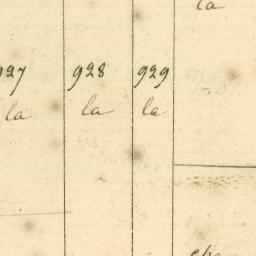 la
927 928 929
la la la